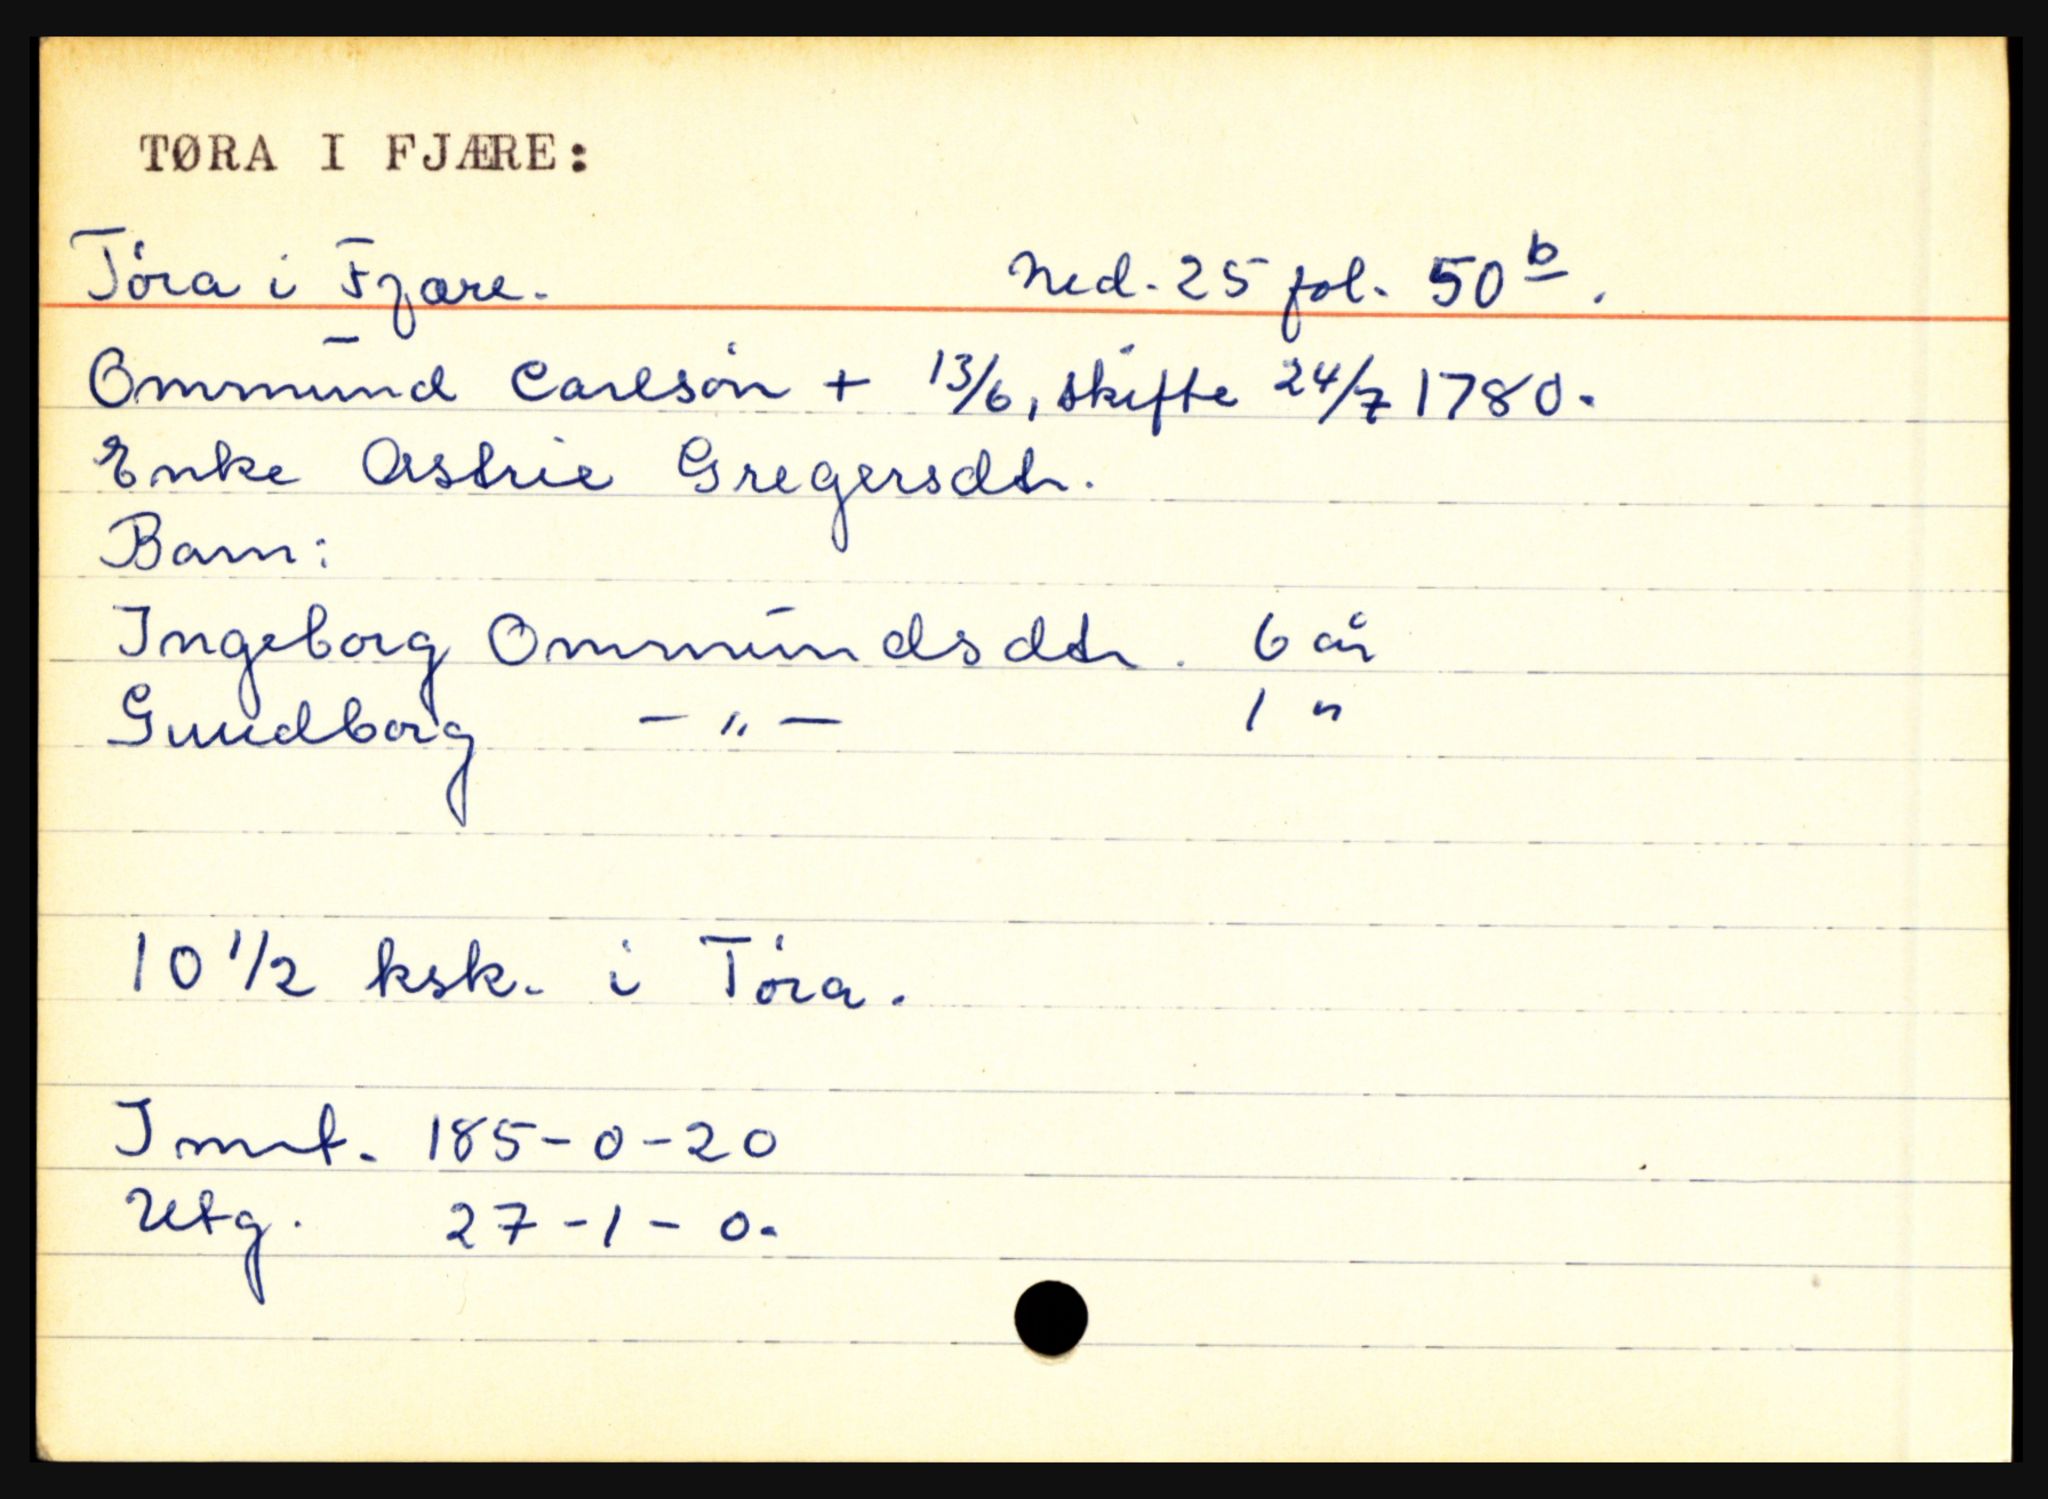 TØRA I FJÆRE:
Tóra i Fjære. Ned. 25 fol. 50 b.
Ommund Carlsón + 13/6, skifte 24/7 1780.
Enke Astrie Gregersdtr.
Barn:
Ingeborg Ommundsdtr. 6 år
Gundborg — " — 1 "
10 1/2 ksk. i Tóra.
Innt. 185-0-20
Utg. 27-1-0.